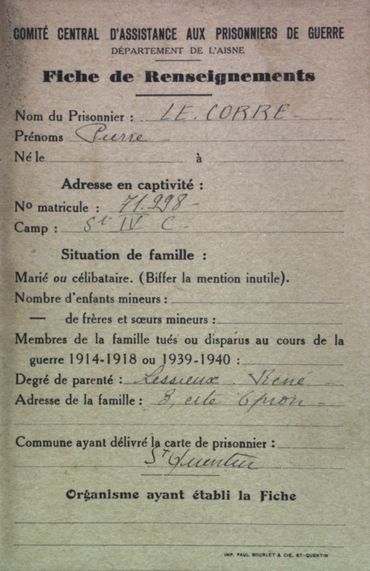 COMITÉ CENTRAL D'ASSISTANCE AUX PRISONNIERS DE GUERRE
DÉPARTEMENT DE L'AISNE
Fiche de Renseignements
Nom du Prisonnier : LE CORRE
Prénoms Pierre
Né le à
Adresse en captivité :
No matricule : 71.298
Camp : St IV C
Situation de famille :
Marié ou célibataire. (Biffer la mention inutile).
Nombre d'enfants mineurs :
— de frères et sœurs mineurs :
Membres de la famille tués ou disparus au cours de la
guerre 1914-1918 ou 1939-1940 :
Degré de parenté : Lessieux Rene
Adresse de la famille : 8, cite
Commune ayant délivré la carte de prisonnier :
St Quentin
Organisme ayant établi la Fiche
IMP. PAUL BOURLET & CIE, ST-QUENTIN